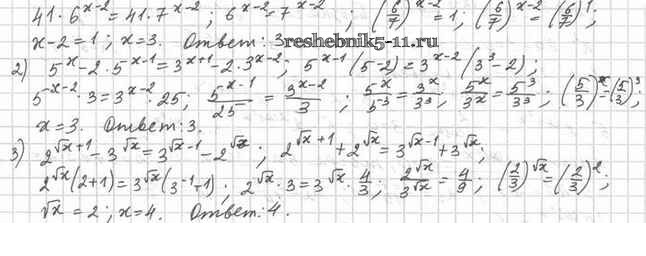 41·6^(x-2) = 41·7^(x-2); 6^(x-2) = 7^(x-2); (6/7)^(x-2) = 1; (6/7)^(x-2) = (6/7)^1;
x-2=1; x=3. Ответ: 3 reshebnik5-11.ru
2) 5^x - 2·5^(x-1) = 3^(x+1) - 2·3^(x-2); 5^(x-1)(5-2) = 3^(x-2)(3^3-2);
5^(x-2)·3 = 3^(x-2)·25; 5^(x-1)/25 = 3^(x-2)/3; 5^x/5^3 = 3^x/3^3; 5^x/3^x = 5^3/3^3; (5/3)^x = (5/3)^3;
x=3. Ответ: 3.
3) 2^(√x+1) - 3^√x = 3^(√x-1) - 2^√x; 2^(√x+1) + 2^√x = 3^(√x-1) + 3^√x;
2^√x(2+1) = 3^√x(3^(-1)+1); 2^√x·3 = 3^√x·4/3; 2^√x/3^√x = 4/9; (2/3)^√x = (2/3)^2;
√x = 2; x=4. Ответ: 4.